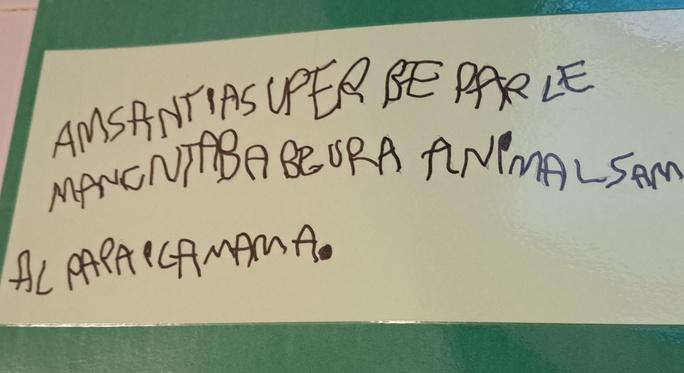 AMSANTIASUPER BE PARLE
MANCNTABA BEURA ANIMALSAM
AL PAPA I LAMAMA.